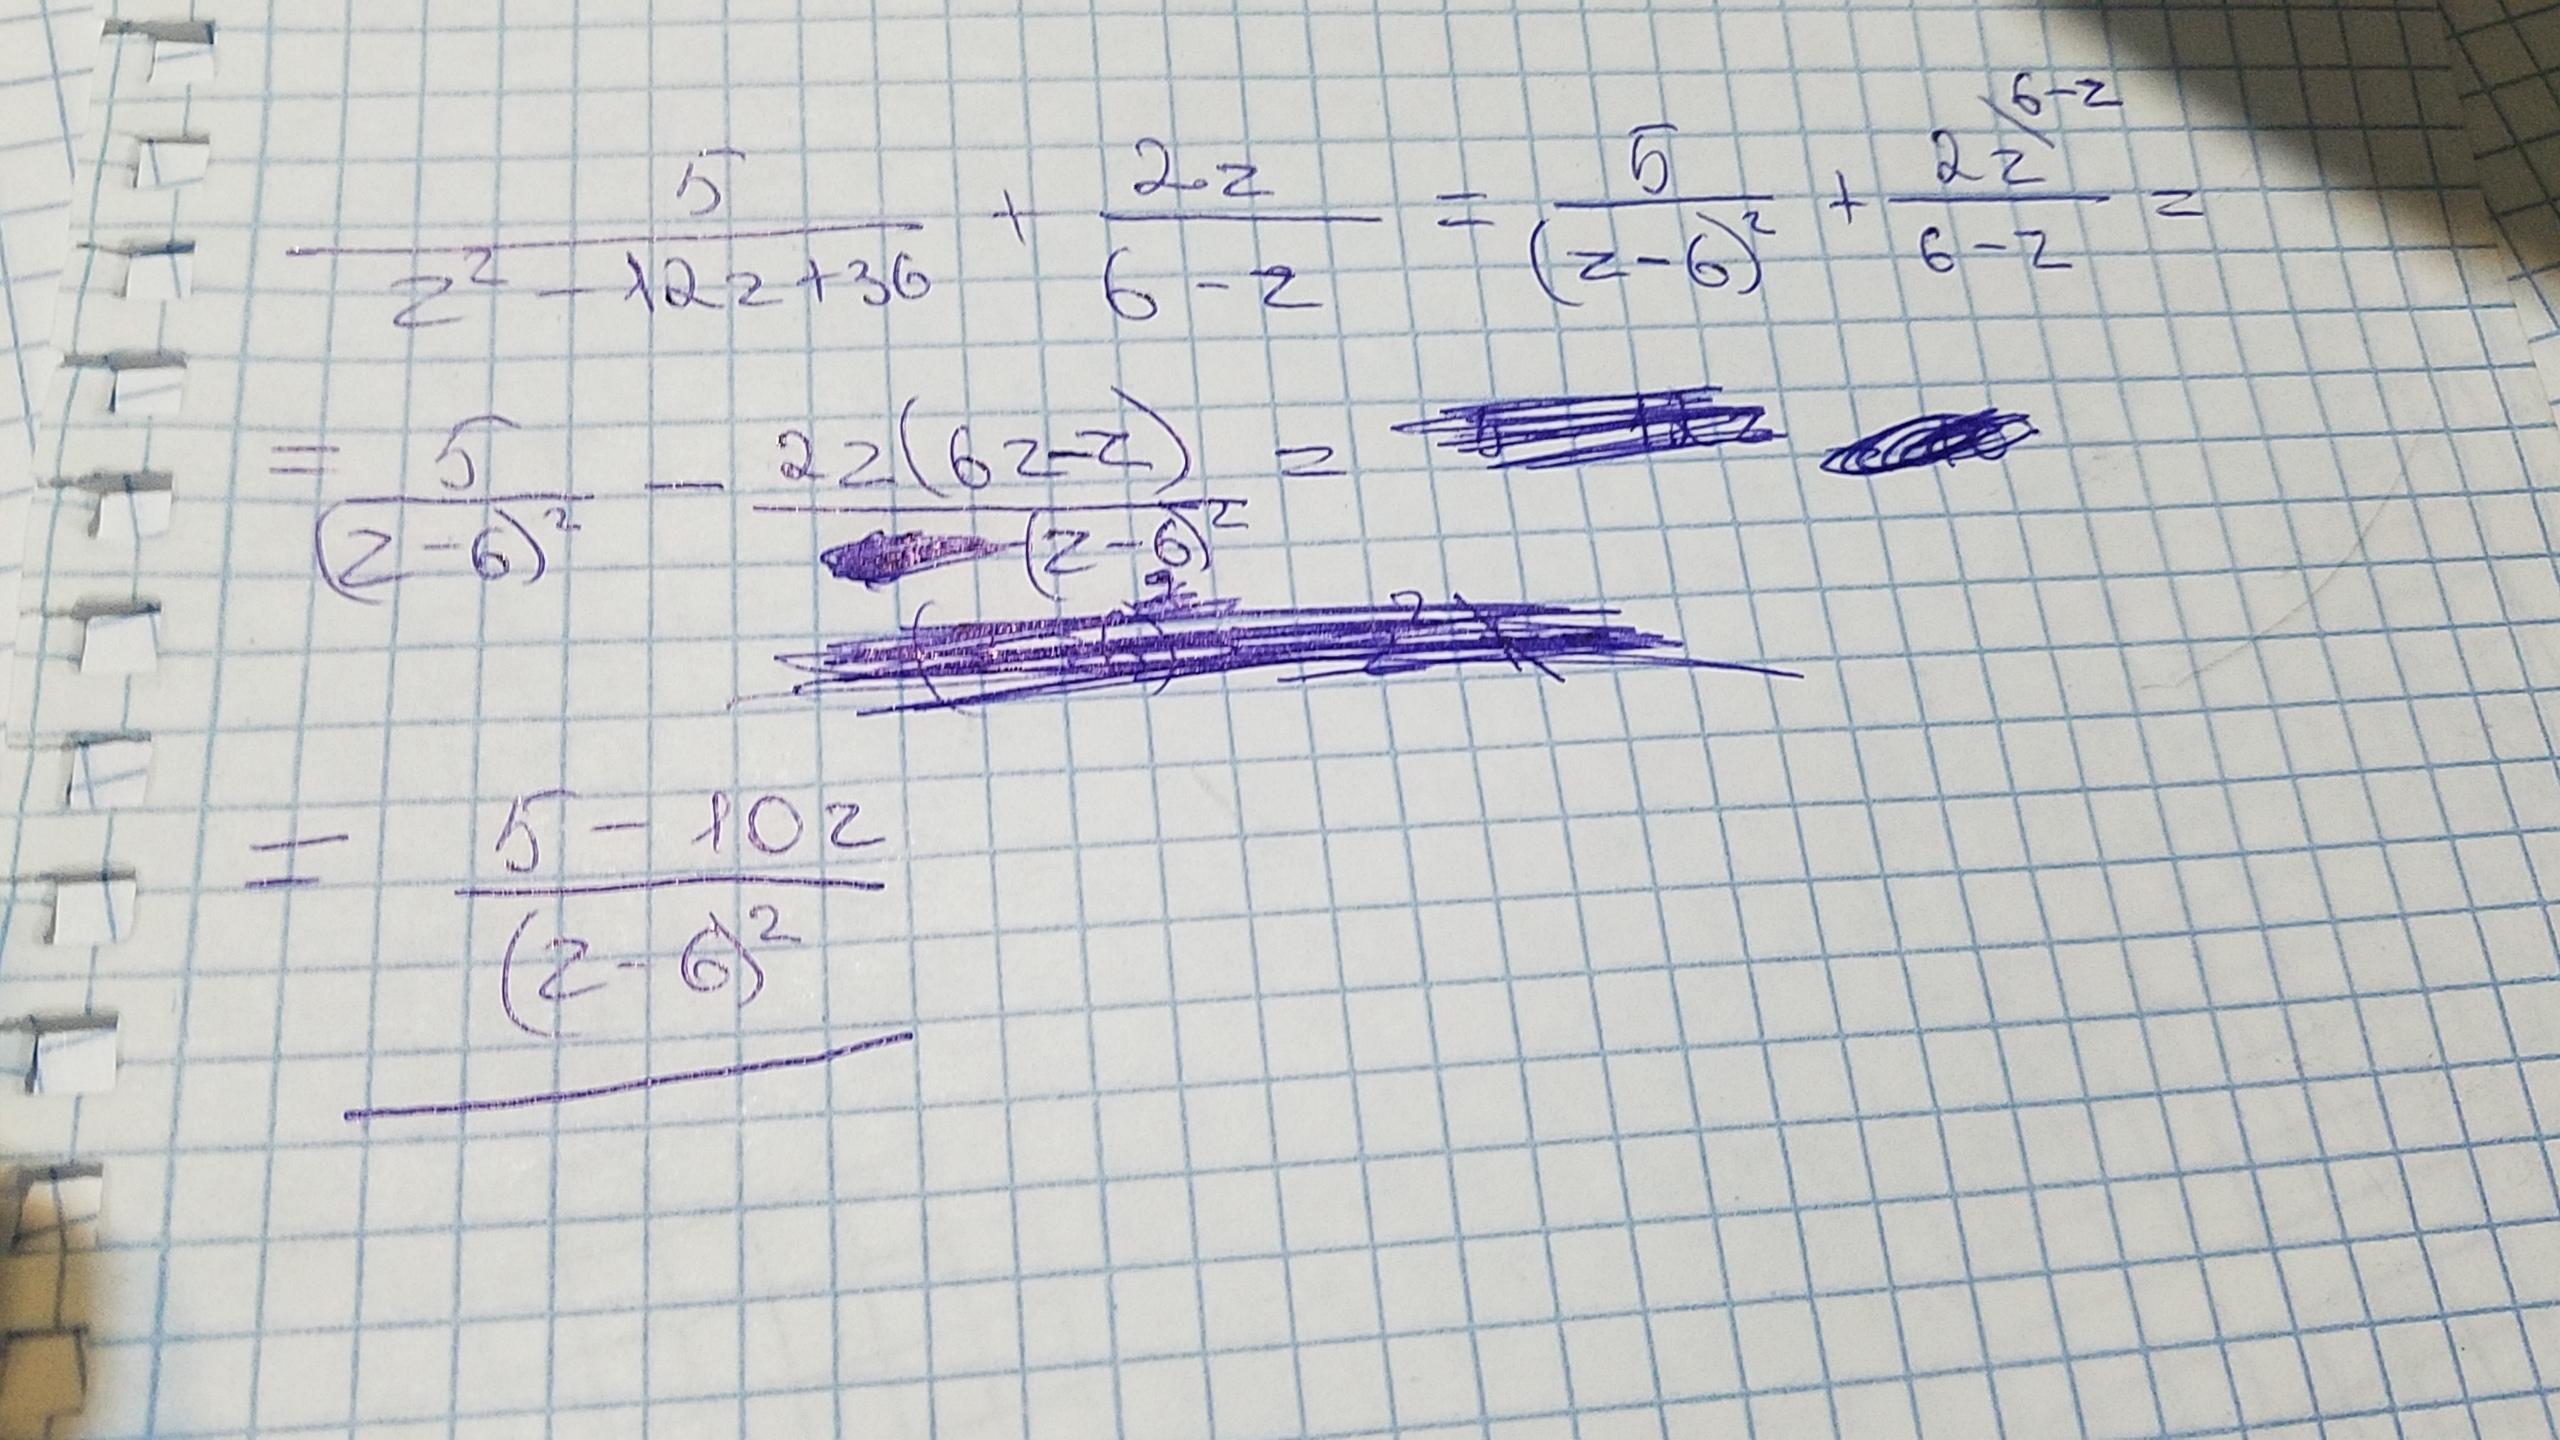 5/(z² - 12z + 36) + 2z/(6 - z) = 5/(z - 6)² + 2z\6-z/(6 - z) =
= 5/(z - 6)² - 2z(6z - z)/(z - 6)² =
= (5 - 10z)/(z - 6)²